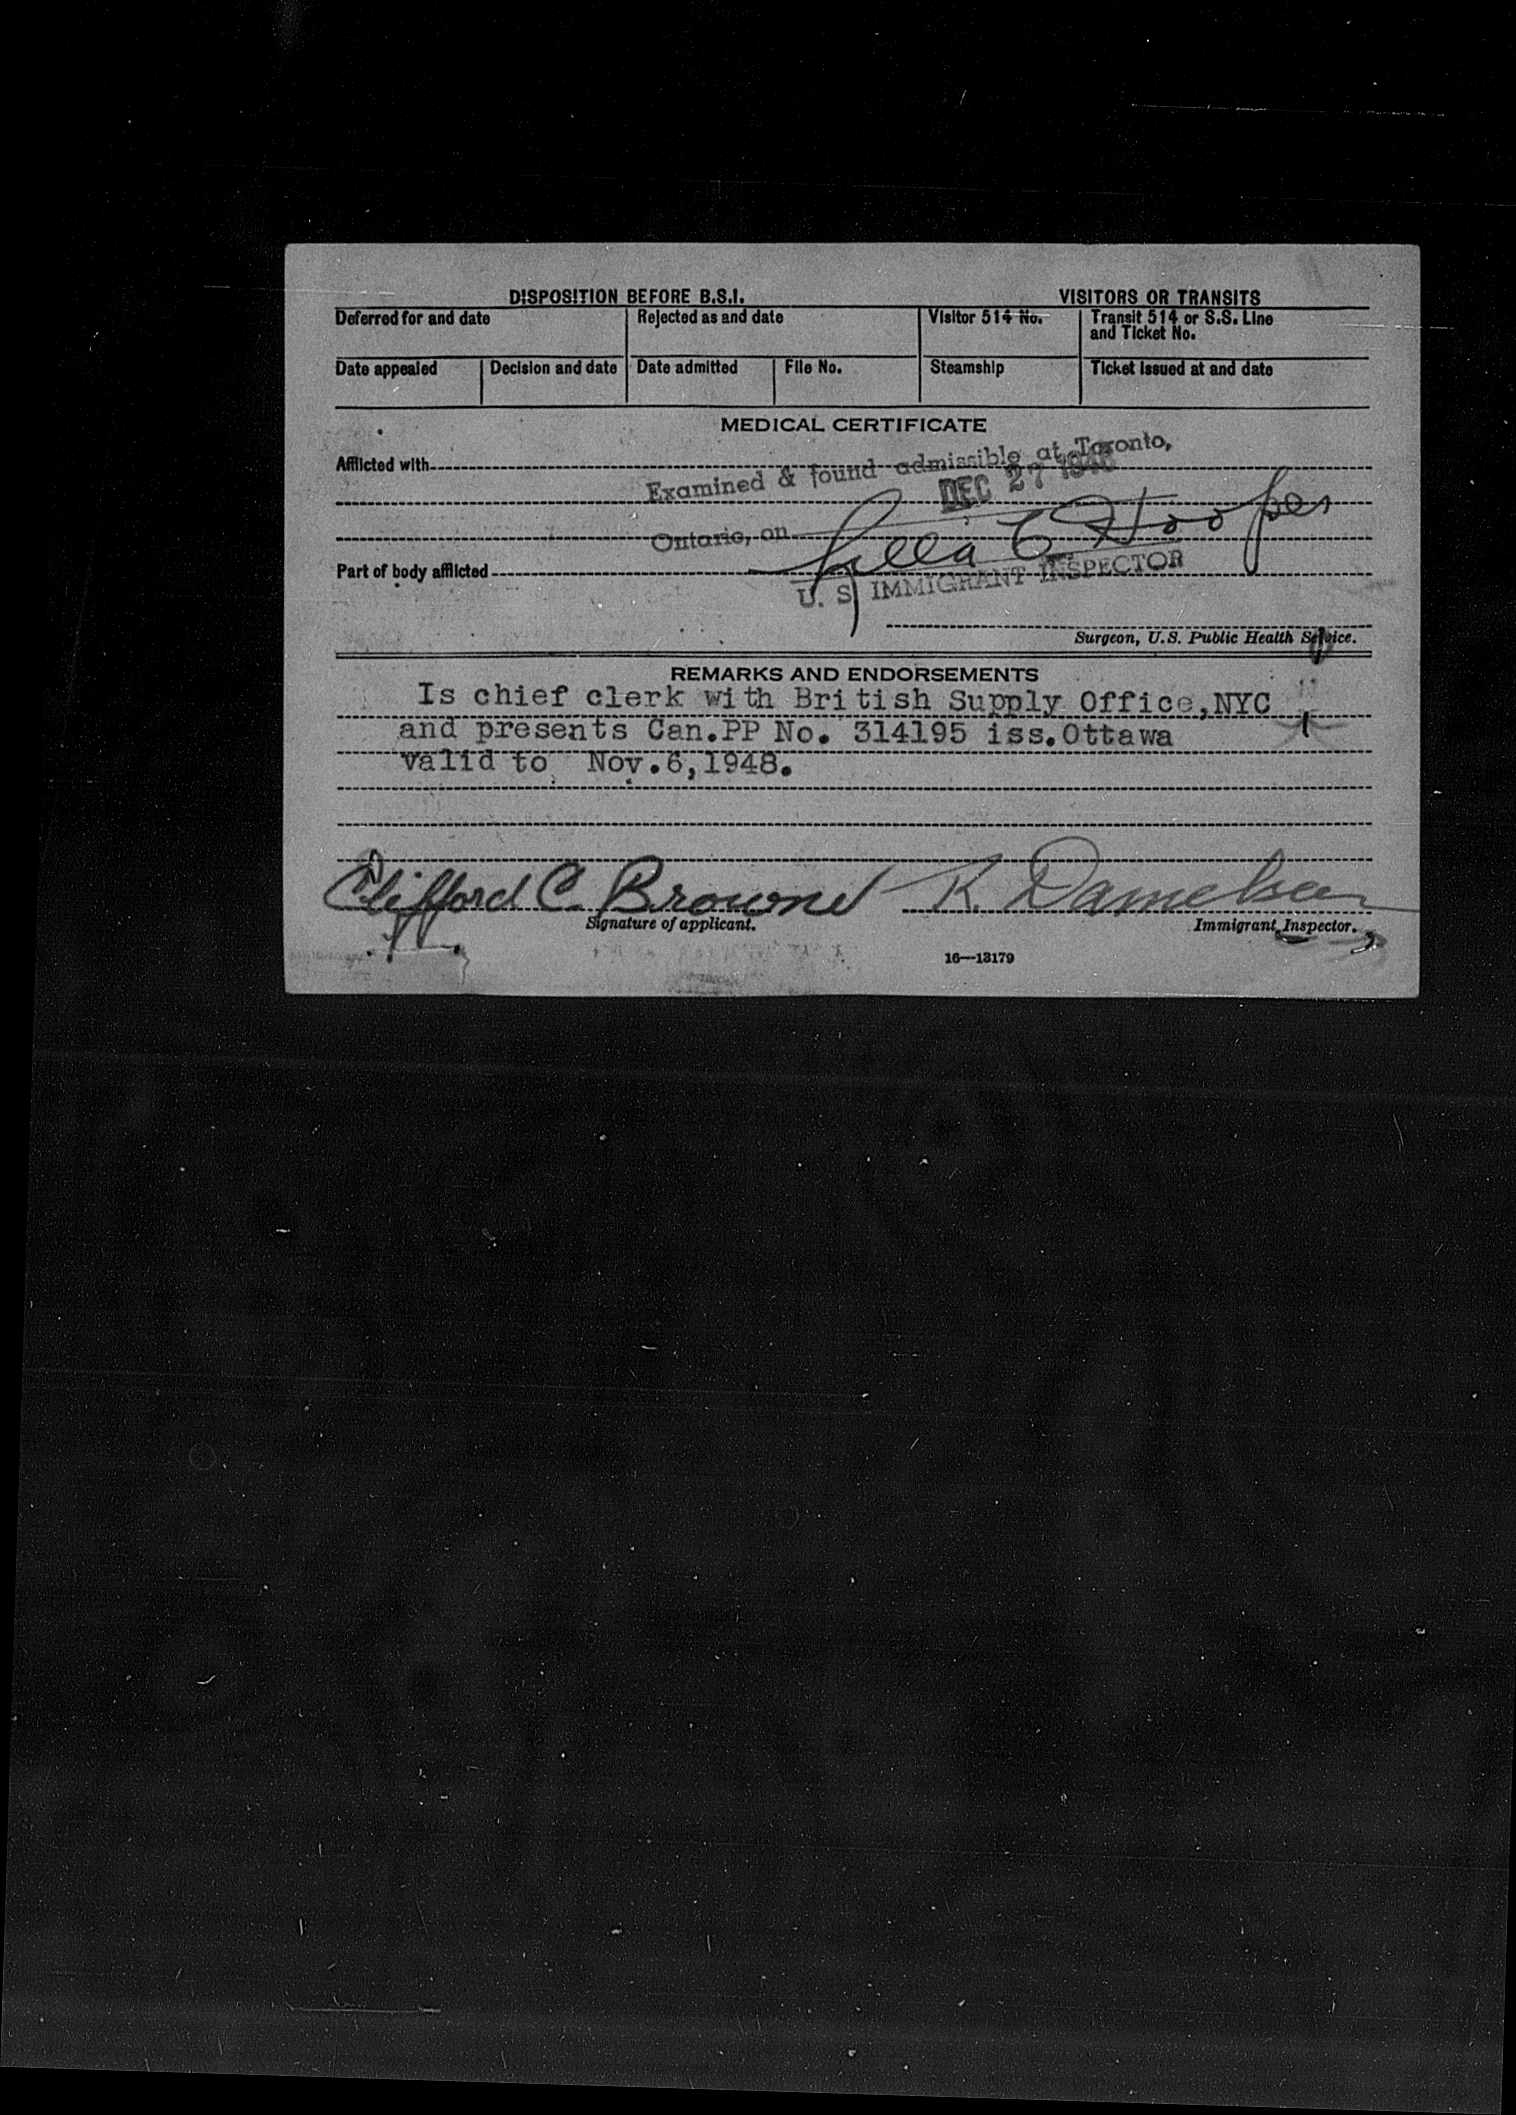 DISPOSITION BEFORE B.S.I.
VISITORS OR TRANSITS
Deferred for and date
Rejected as and date
Visitor 514 No.
Transit 514 or S.S. Line
and Ticket No.
Date appealed
Decision and date
Date admitted
File No.
Steamship
Ticket issued at and date
MEDICAL CERTIFICATE
Afflicted with
Examined & found admissible at Toronto,
DEC 27 1946
Ontario, on
C Hooper
Part of body afflicted
U. S. IMMIGRANT INSPECTOR
Surgeon, U.S. Public Health Service.
REMARKS AND ENDORSEMENTS
Is chief clerk with British Supply Office,NYC
and presents Can.PP No. 314195 iss.Ottawa
valid to Nov.6,1948.
Clifford C. Browne
K. Danielsen
Signature of applicant.
Immigrant Inspector.
16—13179